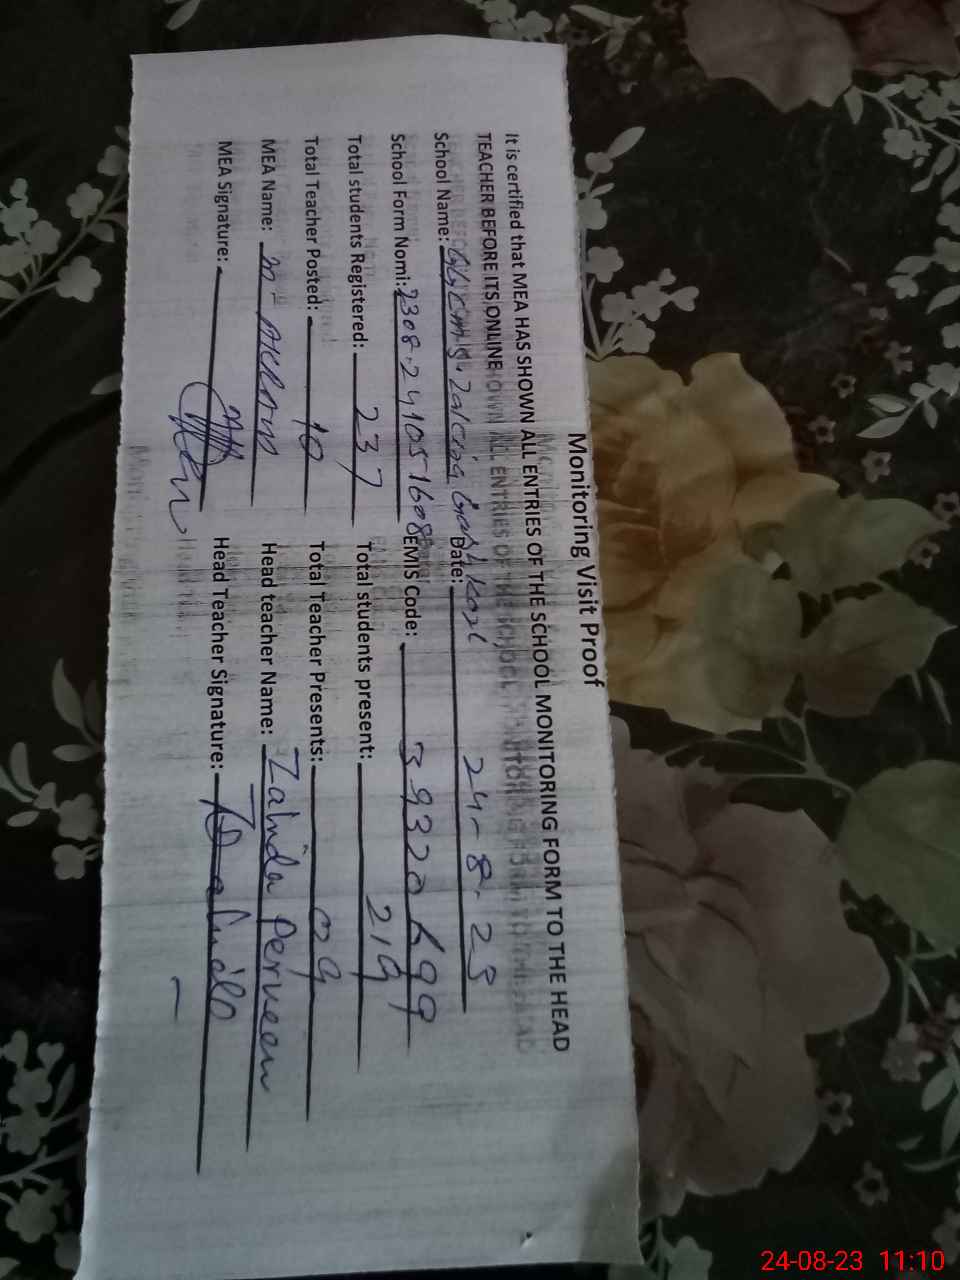 Monitoring Visit Proof
It is certified that MEA HAS SHOWN ALL ENTRIES OF THE SCHOOL MONITORING FORM TO THE HEAD
TEACHER BEFORE ITS ONLINE
School Name: Date: 24-8-23
School Form Nomi: 2308-241051608 EMIS Code:
Total students Registered: 237 Total students present: 219
Total Teacher Posted: 10 Total Teacher Presents: 09
MEA Name: M-Akram Head teacher Name: Zahida Perveen
MEA Signature: Head Teacher Signature: Zahida
24-08-23 11:10